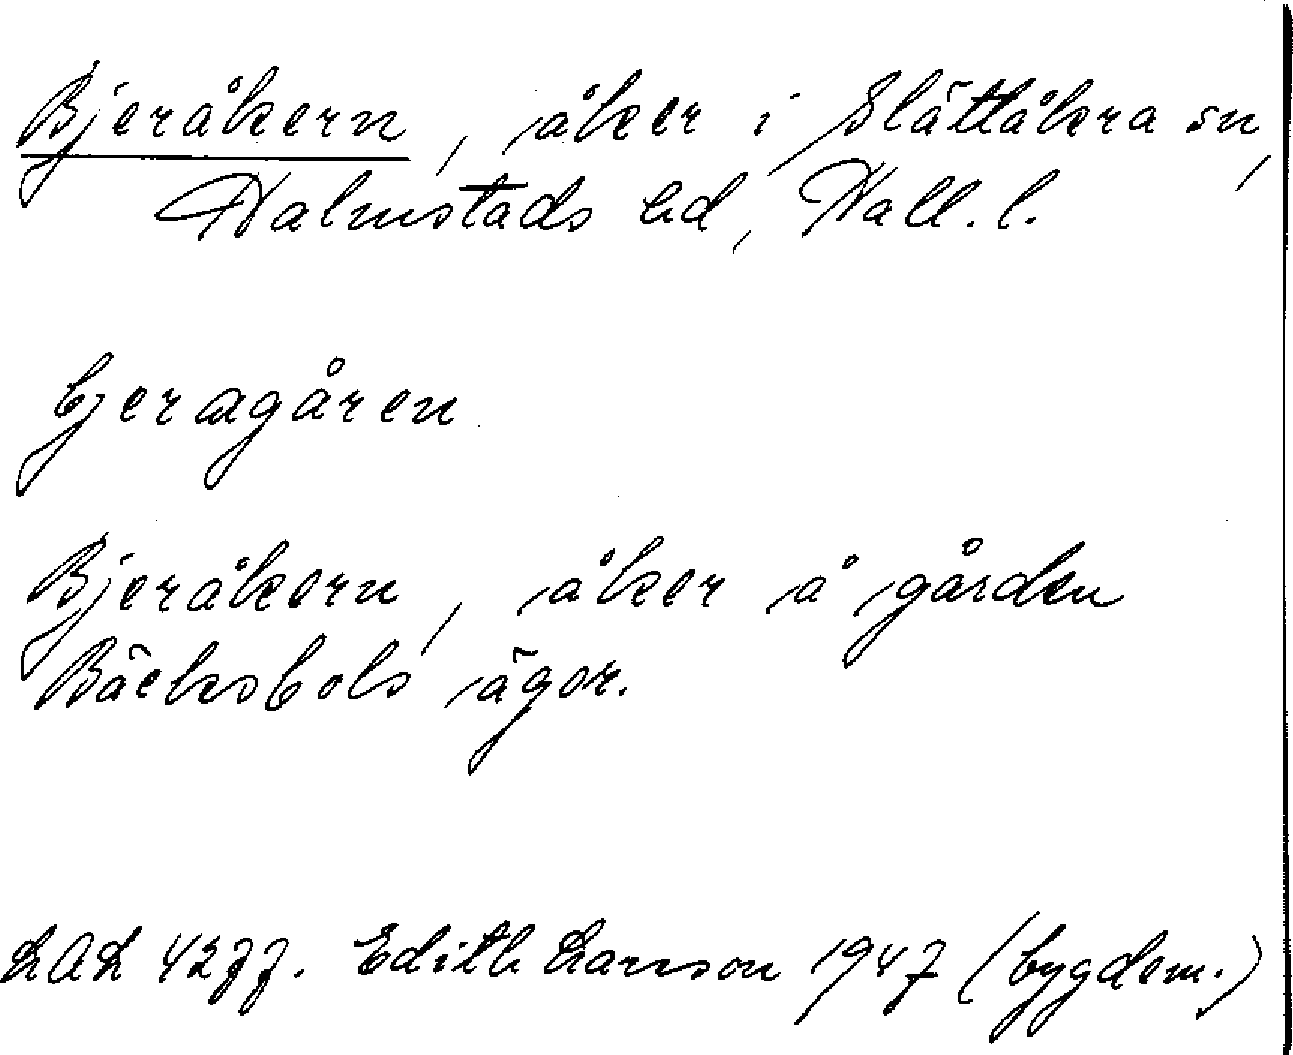 Bjeråkern, åker i Slättåkra sn,
Halmstads hd, Hall. l.
bjeragåren
Bjeråkern, åker å gården
Bäcksbols ägor.
LAL 4277. Edith Larsson 1947 (bygdem.)